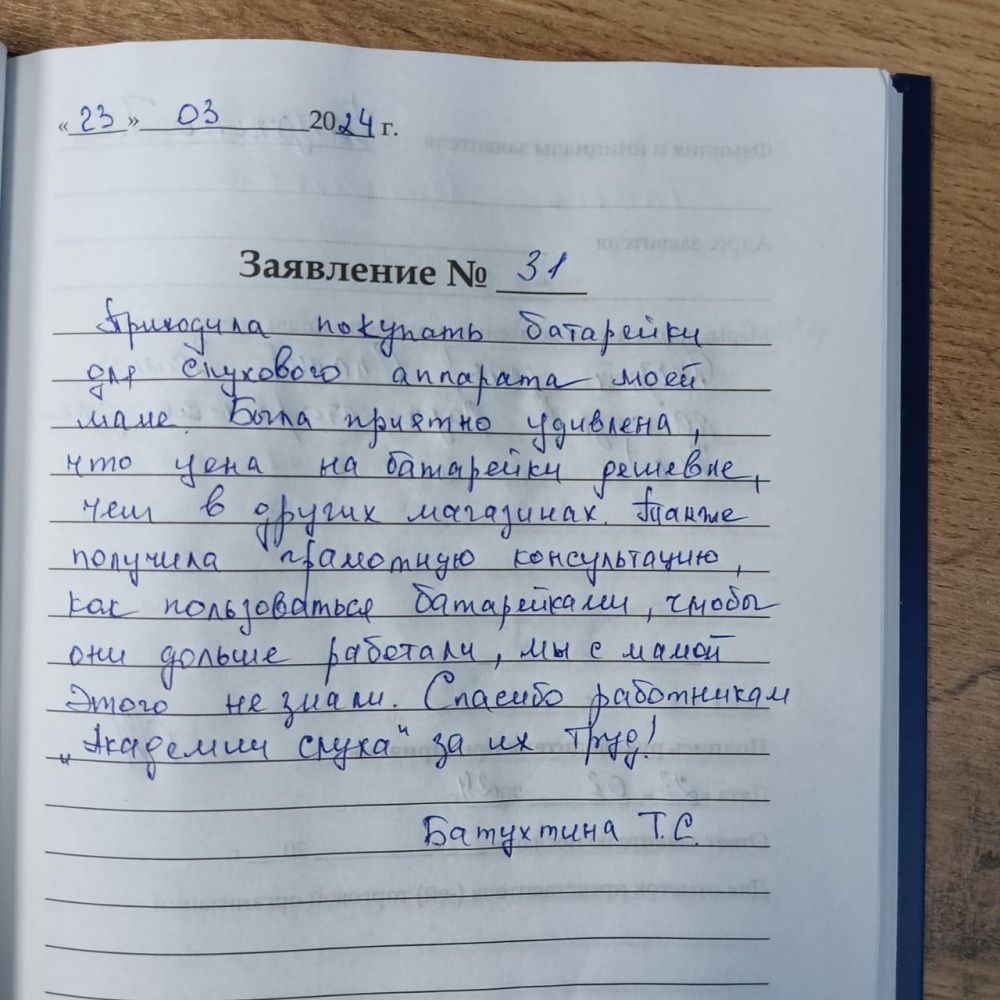 «23» 03 2024 г.
Заявление № 31
Приходила покупать батарейки
для слухового аппарата моей
маме. Была приятно удивлена,
что цена на батарейки дешевле,
чем в других магазинах. Также
получила грамотную консультацию,
как пользоваться батарейками, чтобы
они дольше работали, мы с мамой
этого не знали. Спасибо работникам
„Академии слуха" за их труд!
Батухтина Т.С.